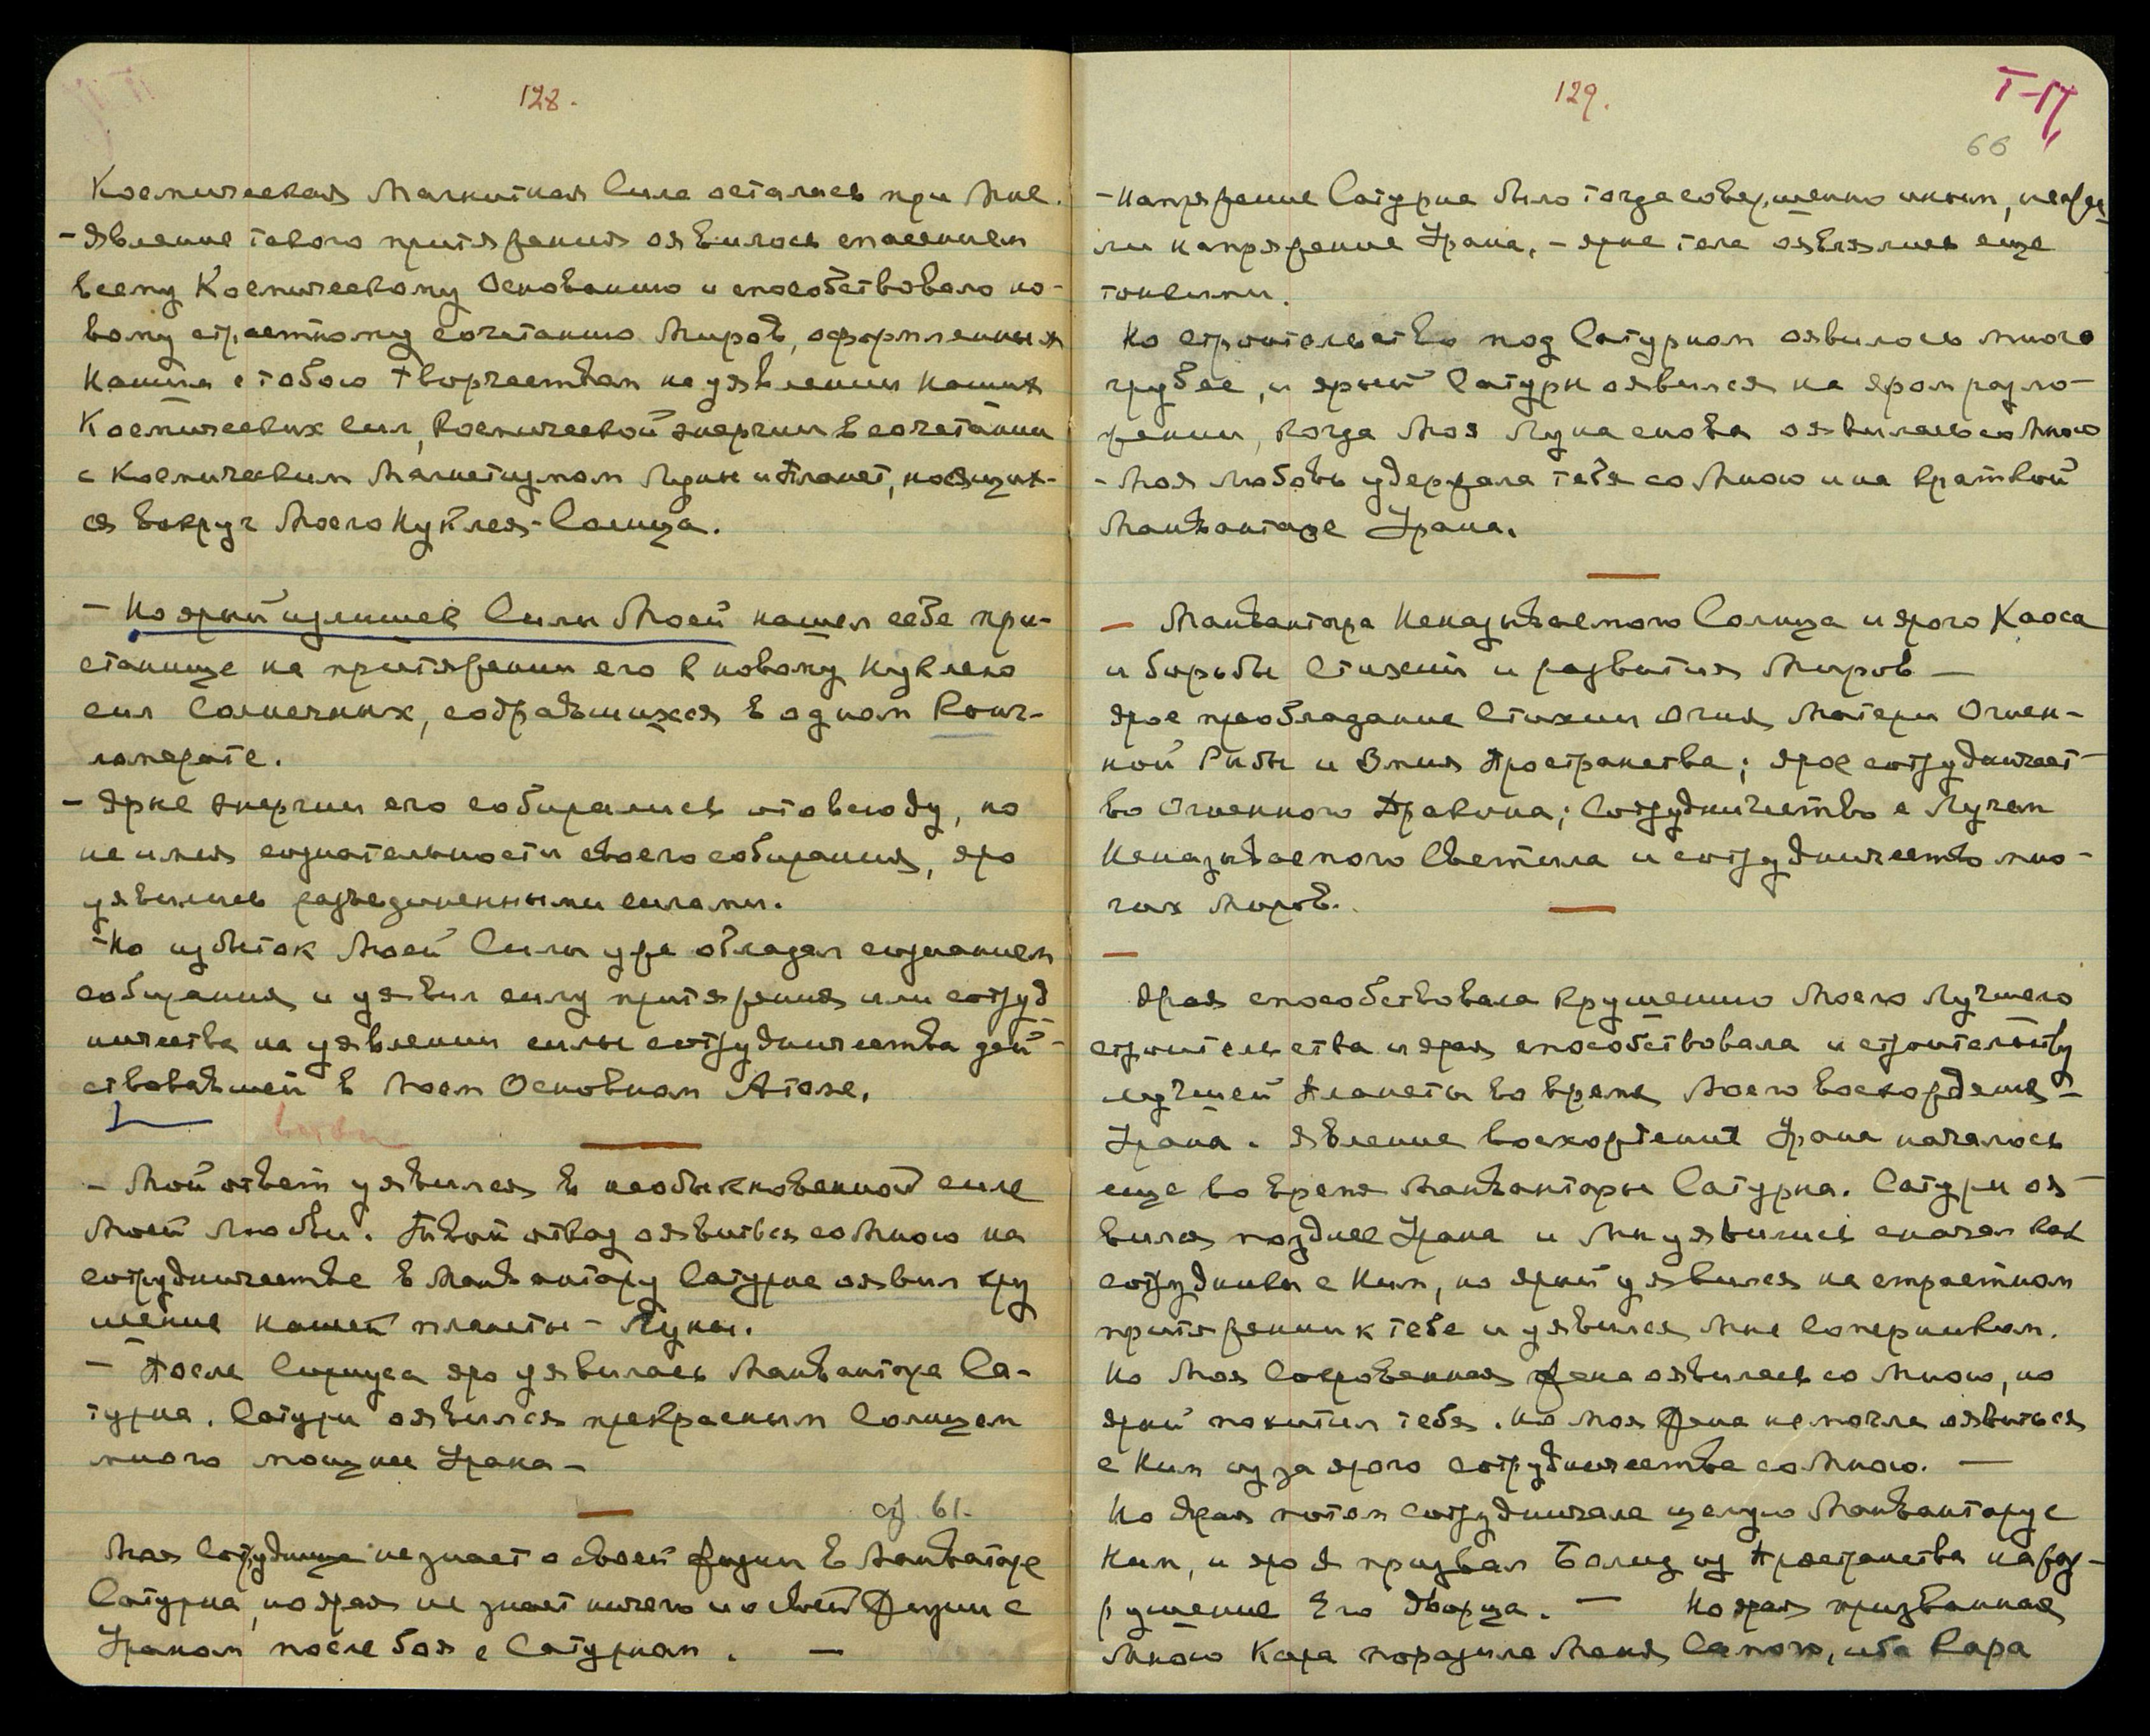 128.
Космическая Магнитная Сила осталась при Мне.
- Явление такого притяжения оявилось спасением
всему Космическому Основанию и способствовало но-
вому страстному сочетанию Миров, оформленных
Нашим с тобою творчеством на уявлении наших
Космических сил, Космической энергии в сочетании
с Космическим Магнетизмом Луны и Планет, носящих-
ся вокруг Моего Нуклея-Солнца.
- Но ярый излишек Силы Моей нашел себе при-
станище на притяжении его к новому Нуклею
сил Солнечных, собравшихся в одном Конг-
ломерате.
- Ярые энергии его собирались отовсюду, но
не имея сознательности своего собирания, яро
уявились разъединенными силами.
- Но избыток Моей Силы уже обладал сознанием
собирания и уявил силу притяжения или сотруд
ничества на уявлении силы сотрудничества дей-
ствовавшей в Моем Основном Атоме.
- Мой ответ уявился в необыкновенной силе
Моей Любви. Твой отход оявиться со Мною на
сотрудничестве в Манвантару Сатурна оявил кру
шение нашей планеты - Луны.
- После Сириуса яро уявилась Манвантара Са-
турна. Сатурн оявился прекрасным Солнцем
много мощнее Урана -
стр. 61.
Моя Сотрудница не знает о своей жизни в Манвантаре
Сатурна, но ярая не знает ничего и о своей жизни с
Ураном после боя с Сатурном. -
129.
66
- Напряжение Сатурна было тогда совершенно иным, неже
ли напряжение Урана, - яркие тела оявлялись еще
тонкими.
Но строительство под Сатурном оявилось много
грубее, и ярый Сатурн оявился на яром разло-
жении, когда Моя Луна снова оявилась со Мною
- Моя Любовь удержала тебя со Мною и на краткой
Манвантаре Урана.
- Манвантара Неназываемого Солнца и ярого Хаоса
и борьбы Стихий и развития Миров -
ярое преобладание Стихии Огня, Матери Огнен-
ной Рыбы и Змия Пространства; ярое сотрудничест-
во Огненного Дракона; Сотрудничество с Лучем
Неназываемого Светила и сотрудничество мно-
гих Миров.
-
Ярая способствовала крушению Моего Лучшего
строительства и ярая способствовала и строительству
лучшей Планеты во время Моего восхождения -
Урана. Явление восхождения Урана началось
еще во время Манвантары Сатурна. Сатурн оя-
вился позднее Урана и Мы уявились сначала как
сотрудники с Ним, но ярый уявился на страстном
притяжении к тебе и уявился Мне Соперником.
Но Моя Сокровенная Жена оявилась со Мною, но
ярый похитил тебя. Но Моя Жена не могла оявиться
с Ним из за ярого сотрудничества со Мною. -
Но Ярая потом сотрудничала целую Манвантару с
Ним, и яро Я призвал Болид из Пространства на раз-
рушение Его Дворца. - Но ярая призванная
Мною Кара поразила Меня Самого, ибо Кара